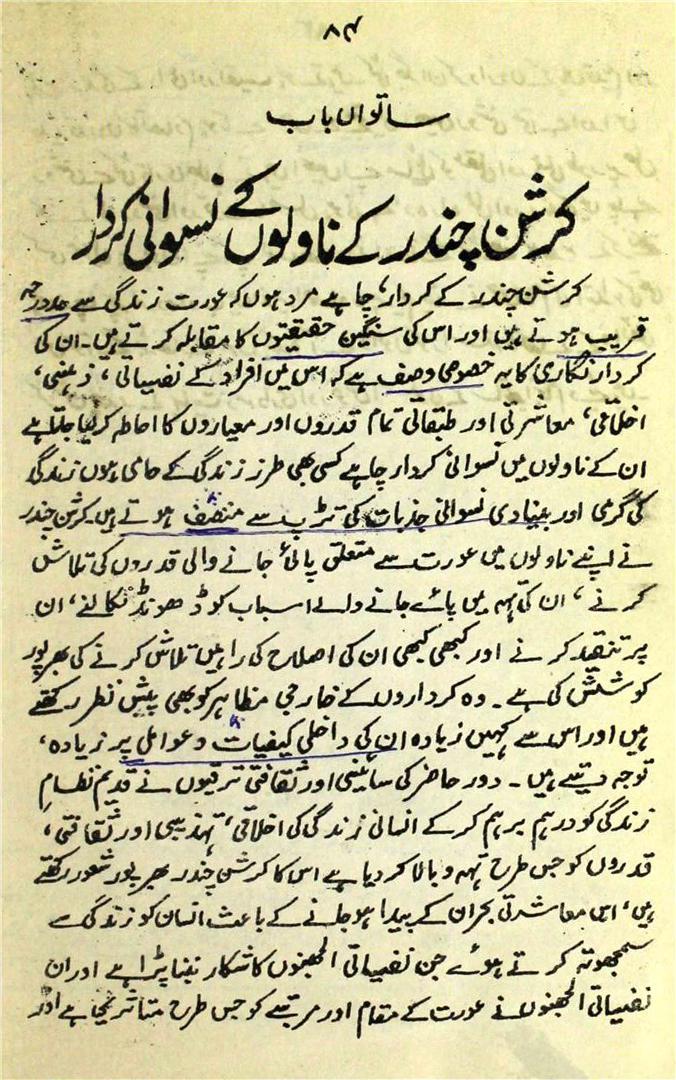 ۸۴
ساتواں باب
کرشن چندر کے ناولوں کے نسوانی کردار
کرشن چندر کے کردار، چاہے مرد ہوں کہ عورت زندگی سے حد درجہ
قریب ہوتے ہیں اور اس کی سنگین حقیقتوں کا مقابلہ کرتے ہیں۔ ان کی
کردار نگاری کا یہ خصوصی وصف ہے کہ اس میں افراد کے نفسیاتی، ذہنی،
اخلاقی، معاشرتی اور طبقاتی تمام قدروں اور معیاروں کا احاطہ کرلیا جاتا ہے
ان کے ناولوں میں نسوانی کردار چاہے کسی بھی طرز زندگی کے حامی ہوں زندگی
کی گرمی اور بنیادی نسوانی جذبات کی تڑپ سے متصف ہوتے ہیں۔ کرشن چندر
نے اپنے ناولوں میں عورت سے متعلق پائی جانے والی قدروں کی تلاش
کرنے، ان کی تہہ میں پائے جانے والے اسباب کو ڈھونڈ نکالنے، ان
پر تنقید کرنے اور کبھی کبھی ان کی اصلاح کی راہیں تلاش کرنے کی بھرپور
کوشش کی ہے۔ وہ کرداروں کے خارجی مظاہر کو بھی پیش نظر رکھتے
ہیں اور اس سے کہیں زیادہ ان کی داخلی کیفیات و عوامل پر زیادہ،
توجہ دیتے ہیں۔ دور حاضر کی سائینسی اور ثقافتی ترقیوں نے قدیم نظامِ
زندگی کو درہم برہم کر کے انسانی زندگی کی اخلاقی، تہذیبی اور ثقافتی،
قدروں کو جس طرح تہہ و بالا کر دیا ہے اس کا کرشن چندر بھرپور شعور رکھتے
ہیں، اس معاشرتی بحران کے پیدا ہو جانے کے باعث انسان کو زندگی سے
سمجھوتہ کرتے ہوئے جن نفسیاتی الجھنوں کا شکار بننا پڑا ہے اور ان
نفسیاتی الجھنوں نے عورت کے مقام اور مرتبے کو جس طرح متاثر کیا ہے اور